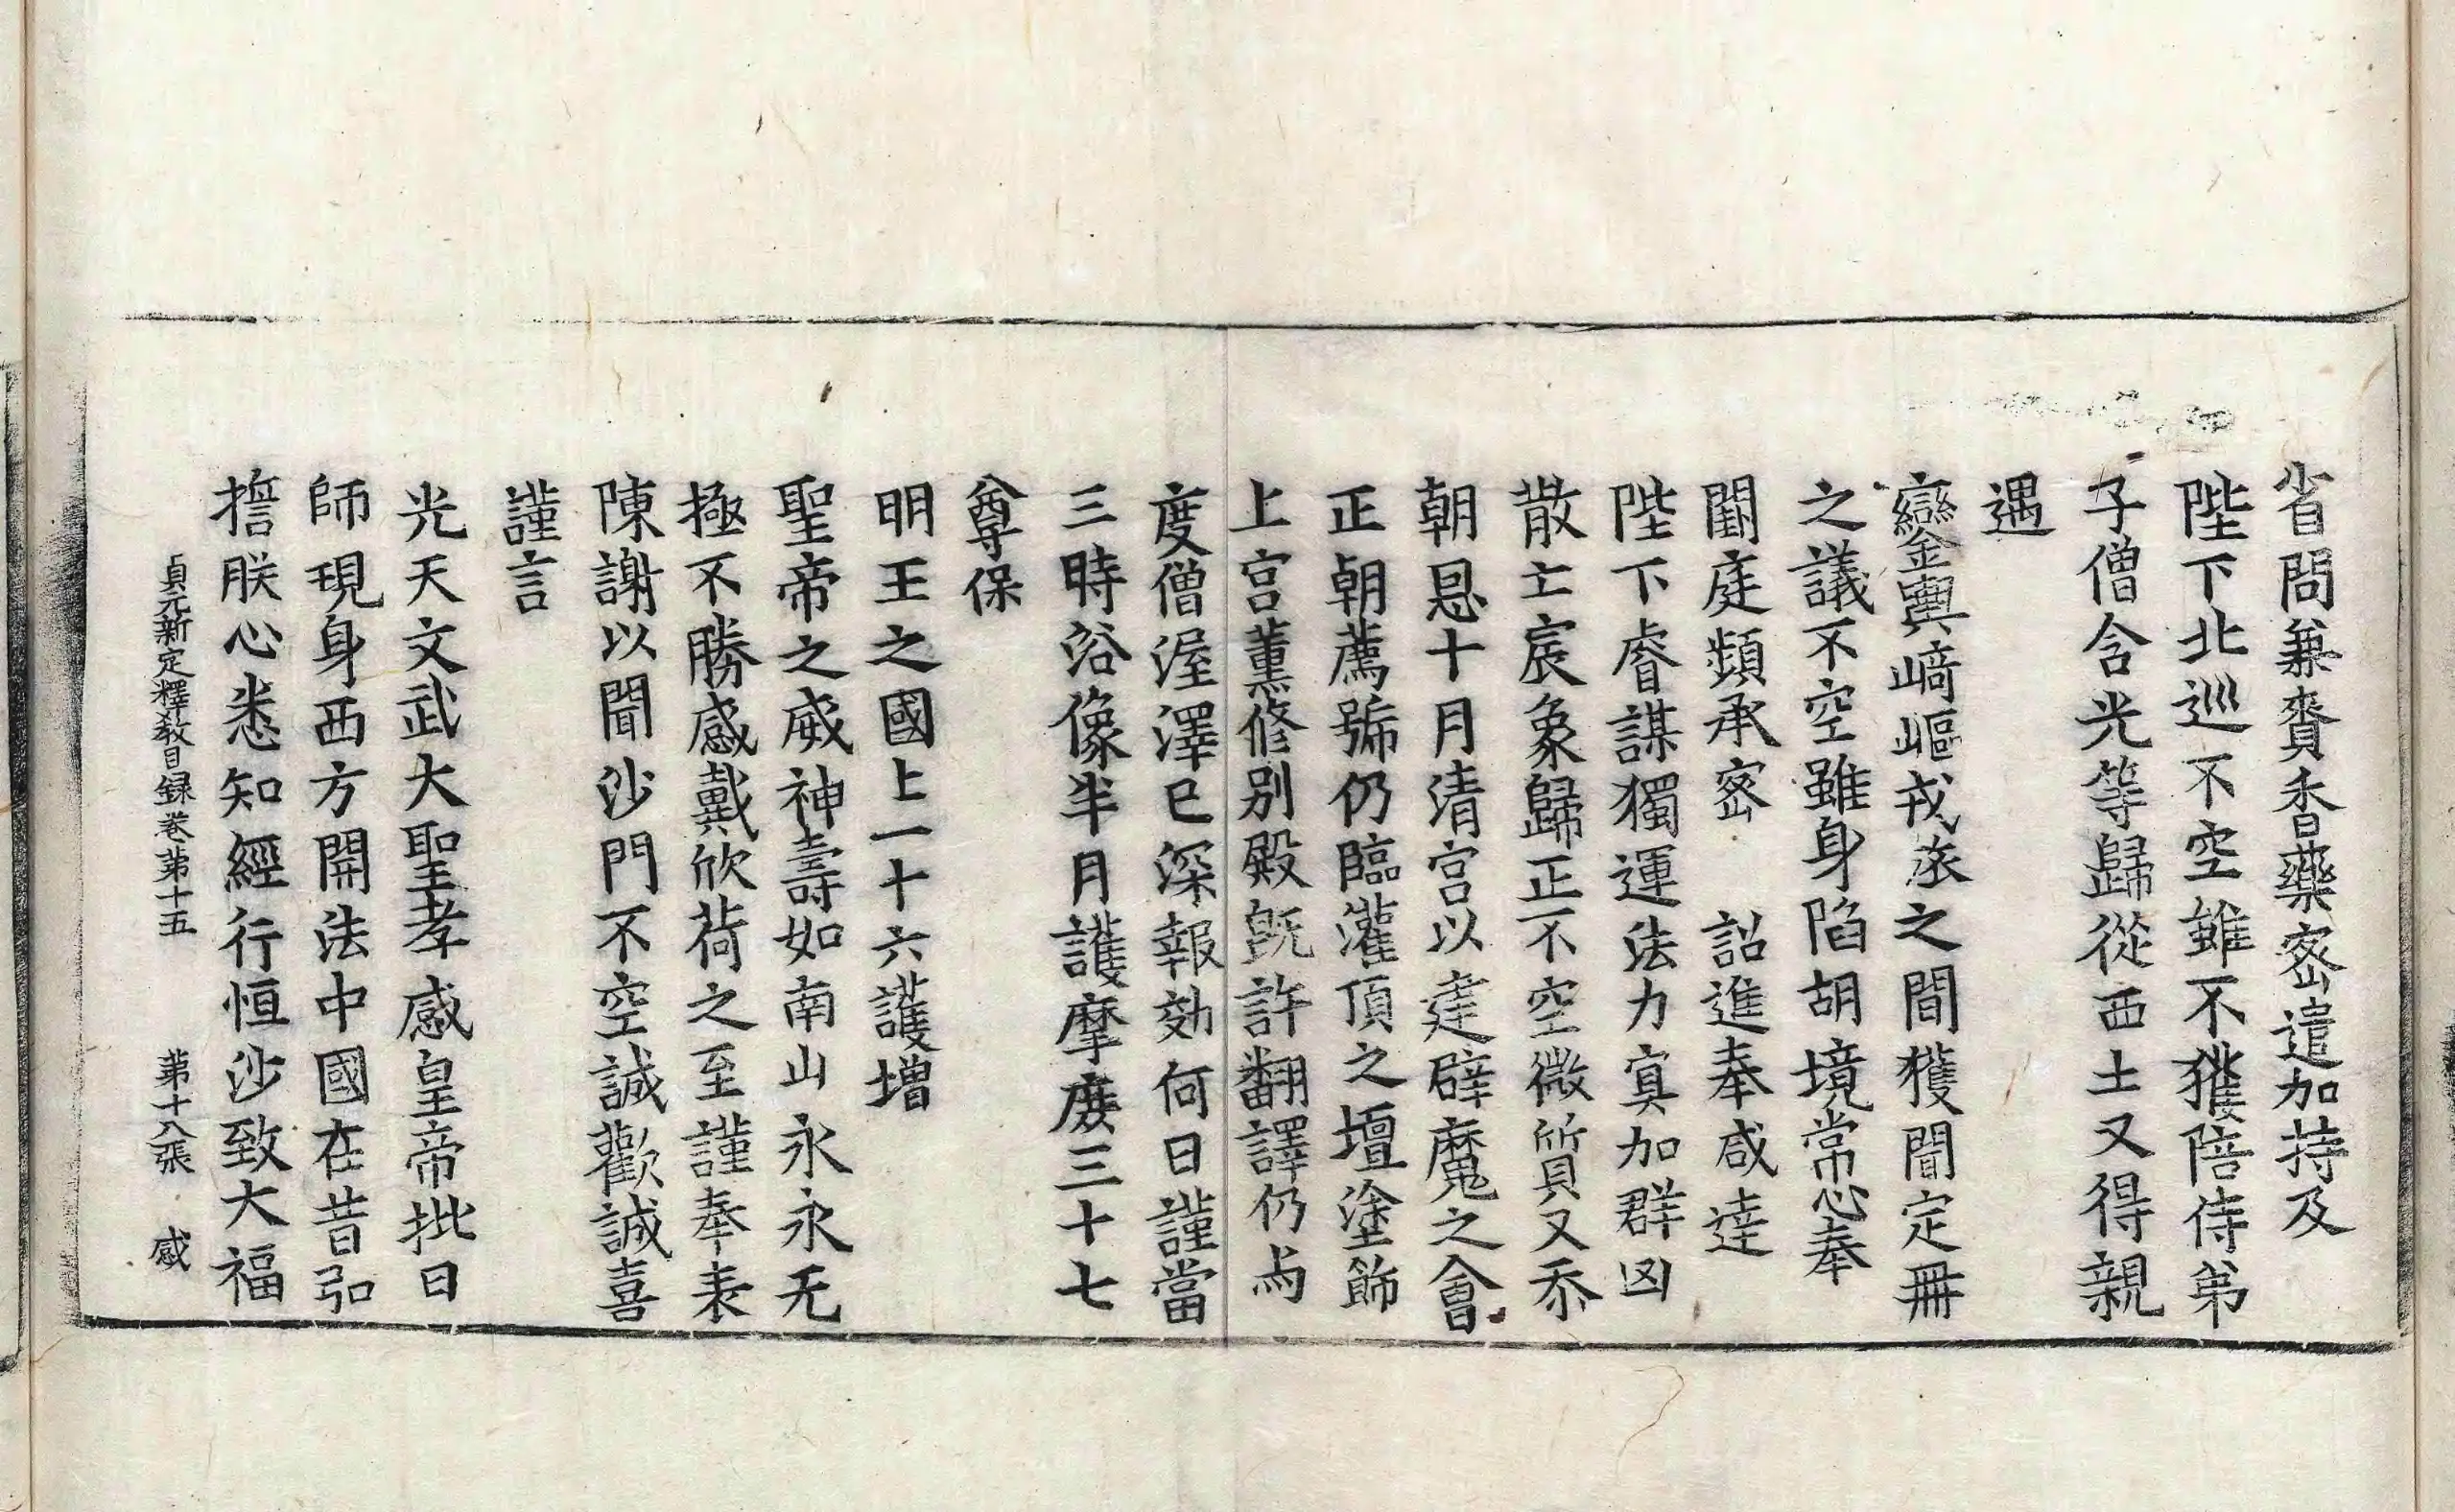 省問兼賷香藥密遣加持及
陛下北巡不空雖不獲陪侍弟
子僧含光等歸從西土又得親
遇
鑾輿崎嶇戎旅之間獲聞定冊
之議不空雖身陷胡境常心奉
闕庭頻承密 詔進奉咸達
陛下睿謀獨運法力冥加群凶
散亡宸象歸正不空微質又忝
朝恩十月清宮以建辟魔之會
正朝薦號仍臨灌頂之壇塗飾
上宮薰修別殿旣許翻譯仍爲
度僧渥澤已深報効何日謹當
三時浴像半月護摩度三十七
尊保
明王之國上一十六護增
聖帝之威神壽如南山永永无
極不勝感戴欣荷之至謹奉表
陳謝以聞沙門不空誠歡誠喜
謹言
光天文武大聖孝感皇帝批曰
師現身西方開法中國在昔弘
擔朕心悉知經行恒沙致大福
貞元新定釋教目録卷第十五 第十八張 感